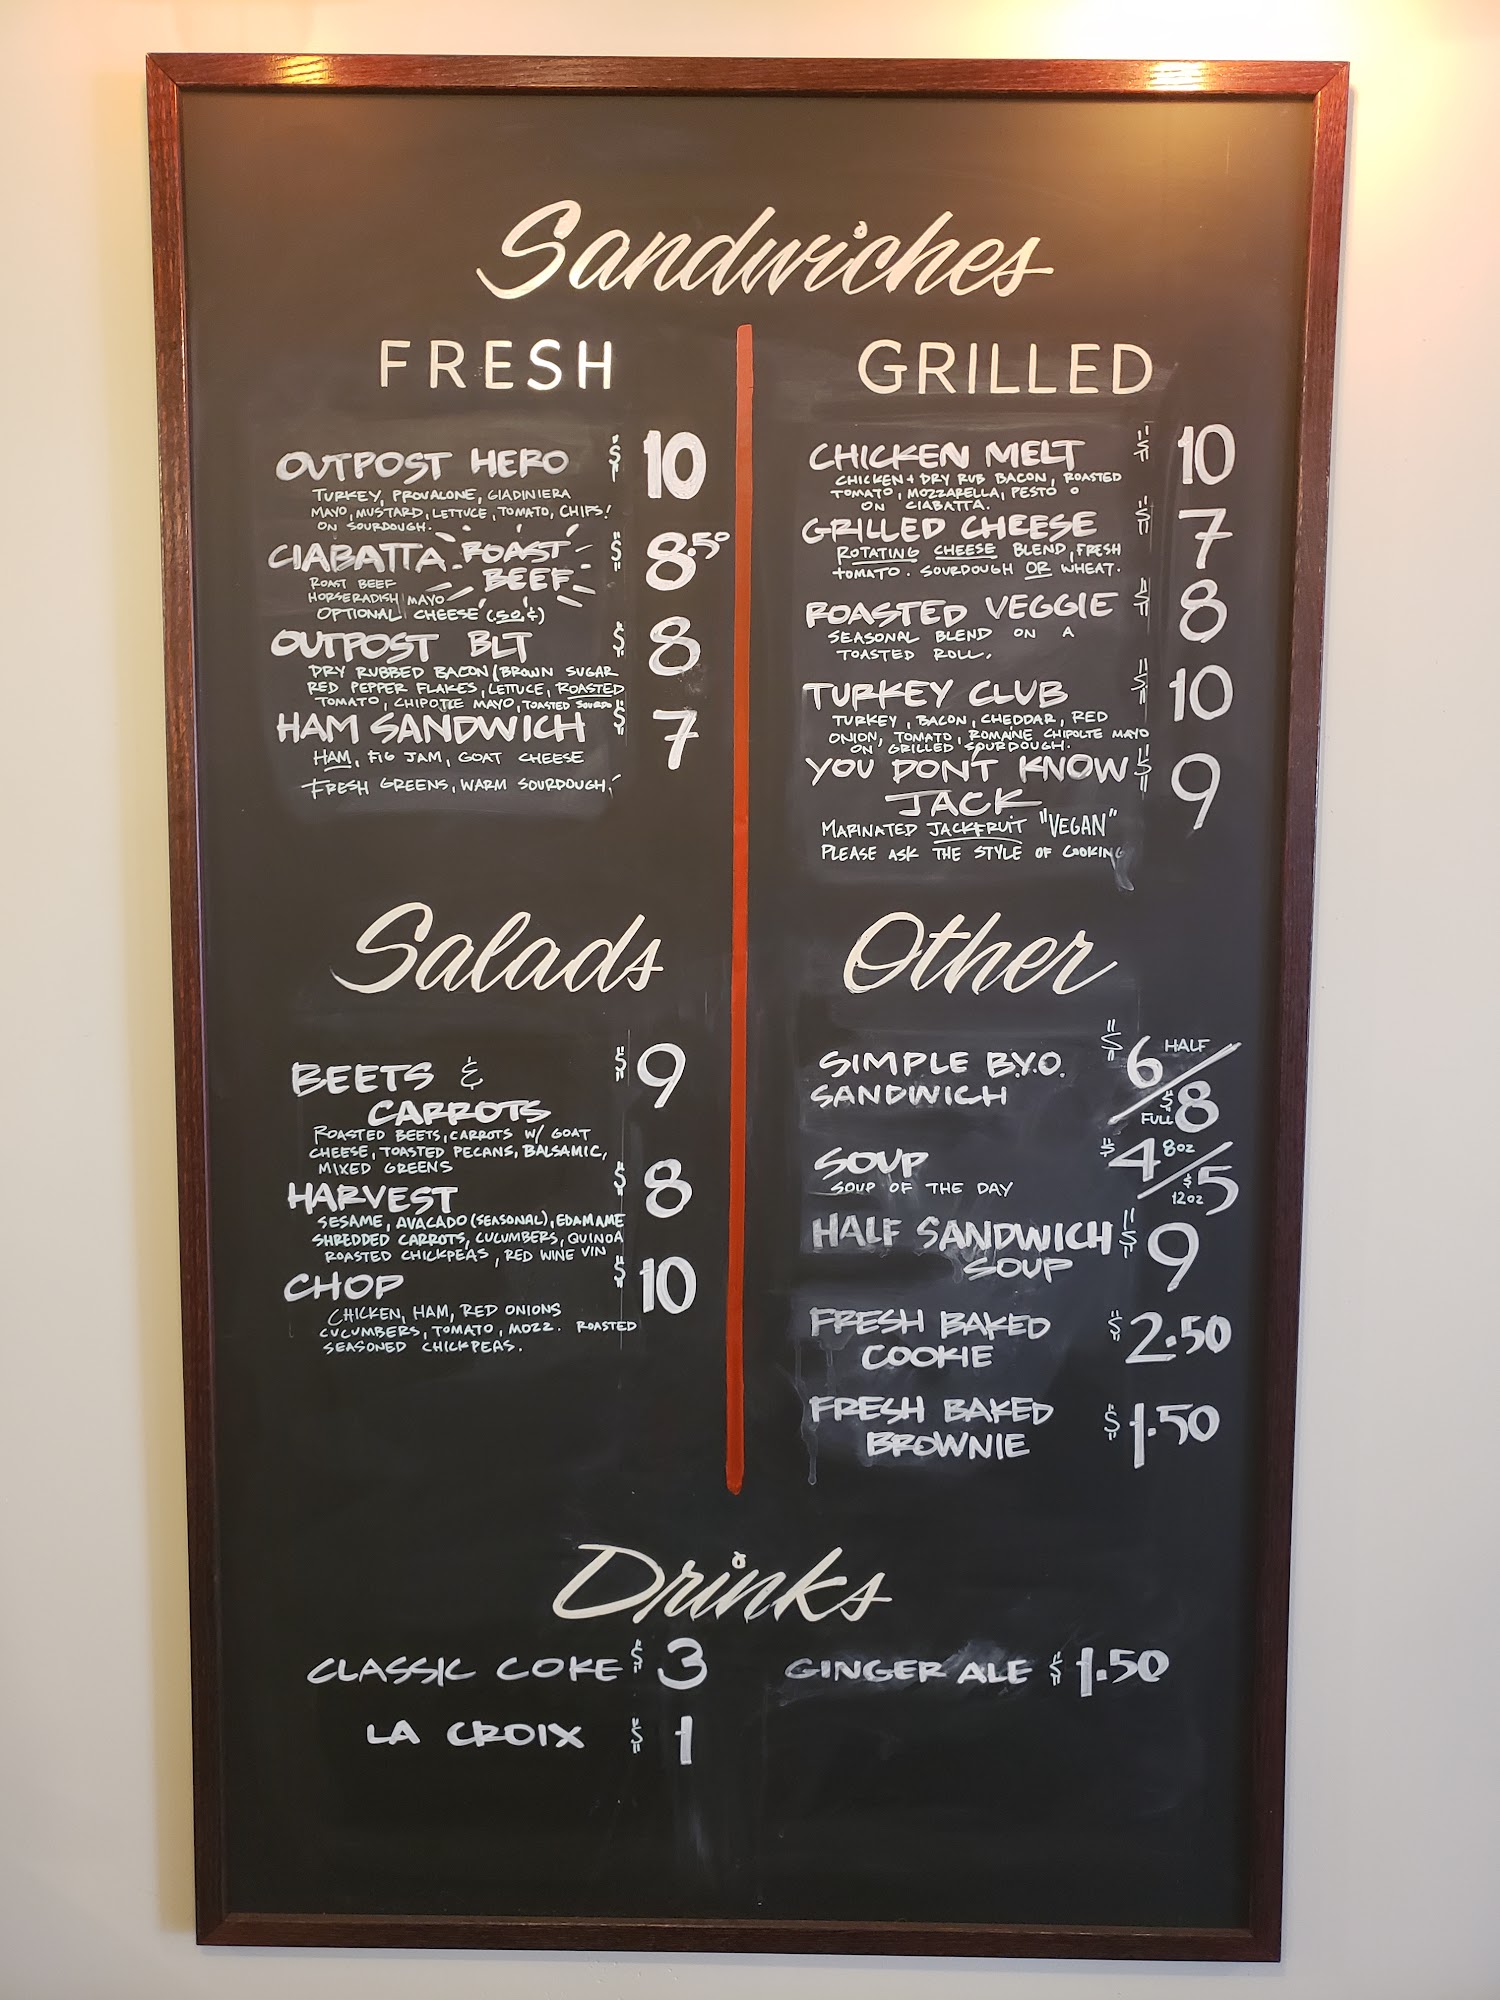 Sandwiches
FRESH
OUTPOST HERO $10
TURKEY, PROVALONE, GIADINIERA
MAYO, MUSTARD, LETTUCE, TOMATO, CHIPS!
ON SOURDOUGH.
CIABATTA ROAST BEEF $8.50
ROAST BEEF
HORSERADISH MAYO
OPTIONAL CHEESE (.50¢)
OUTPOST BLT $8
DRY RUBBED BACON (BROWN SUGAR
RED PEPPER FLAKES, LETTUCE, ROASTED
TOMATO, CHIPOTLE MAYO, TOASTED SOURDO
HAM SANDWICH $7
HAM, FIG JAM, GOAT CHEESE
FRESH GREENS, WARM SOURDOUGH,
GRILLED
CHICKEN MELT $10
CHICKEN + DRY RUB BACON, ROASTED
TOMATO, MOZZARELLA, PESTO
ON CIABATTA.
GRILLED CHEESE $7
ROTATING CHEESE BLEND, FRESH
TOMATO. SOURDOUGH OR WHEAT.
ROASTED VEGGIE $8
SEASONAL BLEND ON A
TOASTED ROLL.
TURKEY CLUB $10
TURKEY, BACON, CHEDDAR, RED
ONION, TOMATO, ROMAINE CHIPOLTE MAYO
ON GRILLED SOURDOUGH.
YOU DON'T KNOW $9
JACK
MARINATED JACKFRUIT "VEGAN"
PLEASE ASK THE STYLE OF COOKING
Salads
BEETS & $9
CARROTS
ROASTED BEETS, CARROTS W/ GOAT
CHEESE, TOASTED PECANS, BALSAMIC,
MIXED GREENS
HARVEST $8
SESAME, AVACADO (SEASONAL), EDAMAME
SHREDDED CARROTS, CUCUMBERS, QUINOA
ROASTED CHICKPEAS, RED WINE VIN
CHOP $10
CHICKEN, HAM, RED ONIONS
CUCUMBERS, TOMATO, MOZZ. ROASTED
SEASONED CHICKPEAS.
Other
SIMPLE B.Y.O. $6 HALF
SANDWICH FULL $8
SOUP $4 8oz
SOUP OF THE DAY $5 12oz
HALF SANDWICH $9
SOUP
FRESH BAKED $2.50
COOKIE
FRESH BAKED $1.50
BROWNIE
Drinks
CLASSIC COKE $3
GINGER ALE $1.50
LA CROIX $1